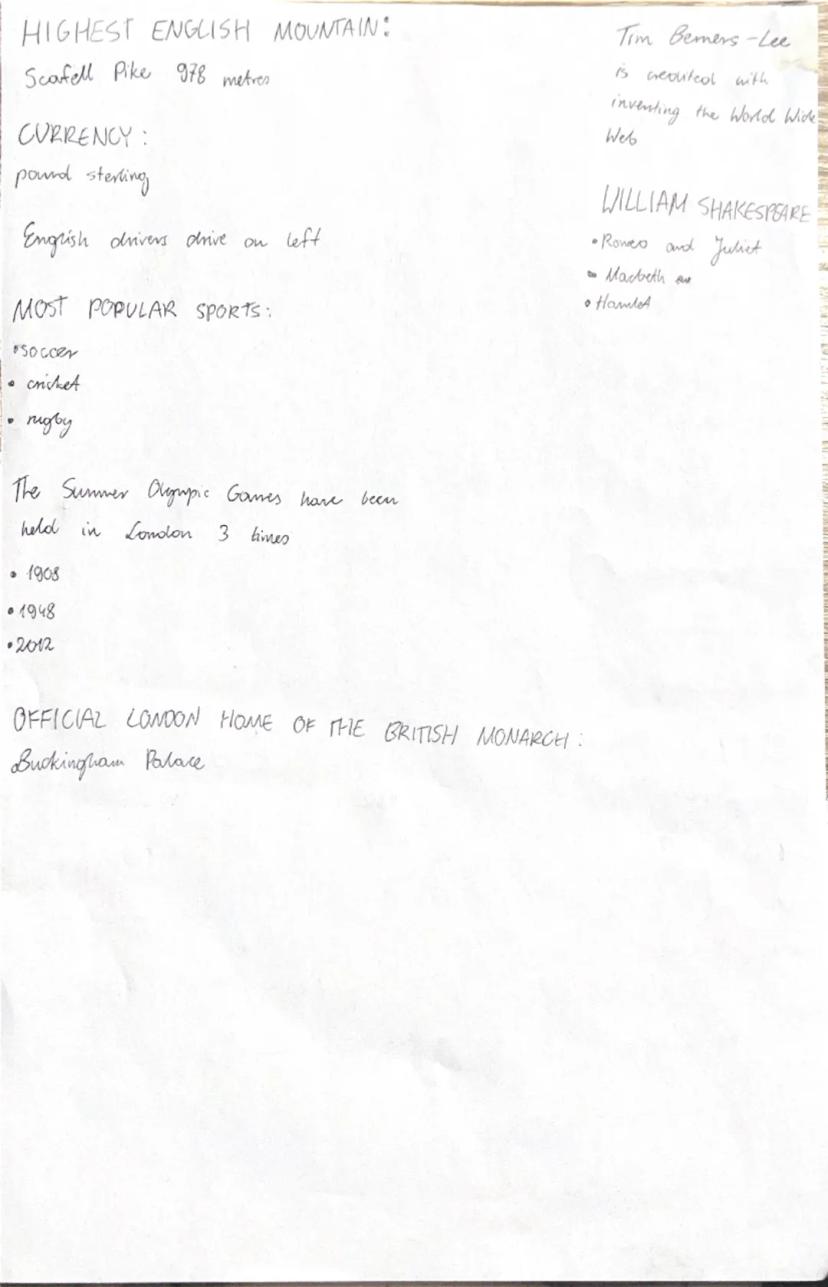 HIGHEST ENGLISH MOUNTAIN:
Scafell Pike 978 metres
CURRENCY:
pound sterling
English drivers drive on left
MOST POPULAR SPORTS:
• soccer
• cricket
• rugby
The Summer Olympic Games have been
held in London 3 times
• 1908
• 1948
• 2012
OFFICIAL LONDON HOME OF THE BRITISH MONARCH:
Buckingham Palace
Tim Berners-Lee
is credited with
inventing the World Wide
Web
WILLIAM SHAKESPEARE
• Romeo and Juliet
• Macbeth
• Hamlet